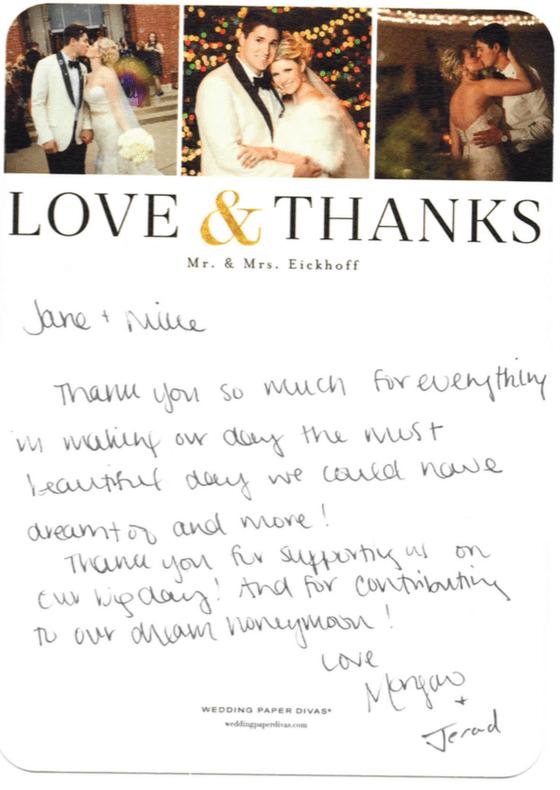 LOVE & THANKS
Mr. & Mrs. Eickhoff
Jane + Mike
Thank you so much for everything
in making our day the most
beautiful day we could have
dreamt of and more!
Thank you for supporting us on
our big day! And for contributing
to our dream honeymoon!
Love
Morgan
+
Jerad
WEDDING PAPER DIVAS®
weddingpaperdivas.com